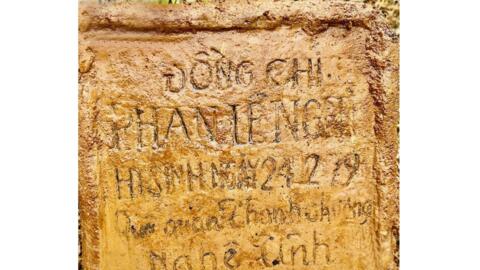 ĐỒNG CHÍ
PHAN
HI SINH NGÀY 24.2.79
quán Thanh chương
Nghệ Tĩnh